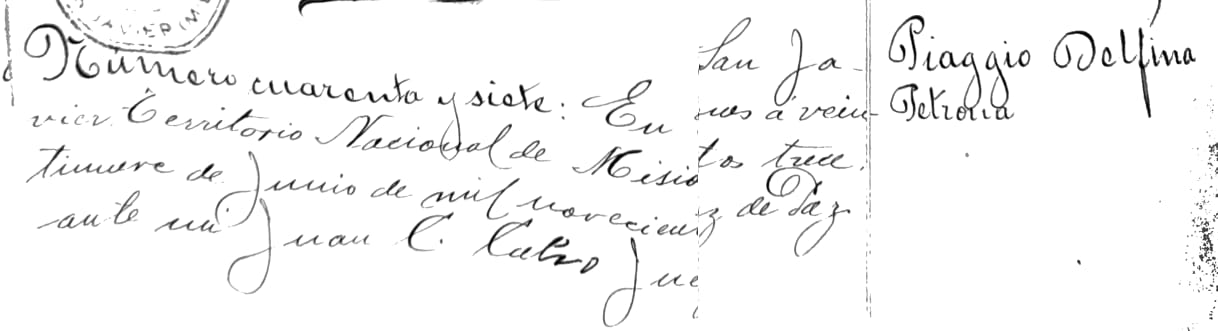 Número cuarenta y siete: En San Ja-
vier Territorio Nacional de Misiones á vein-
tinueve de Junio de mil novecientos trece.
ante mi Juan C. Juez de Paz
Piaggio Delfina
Petrona